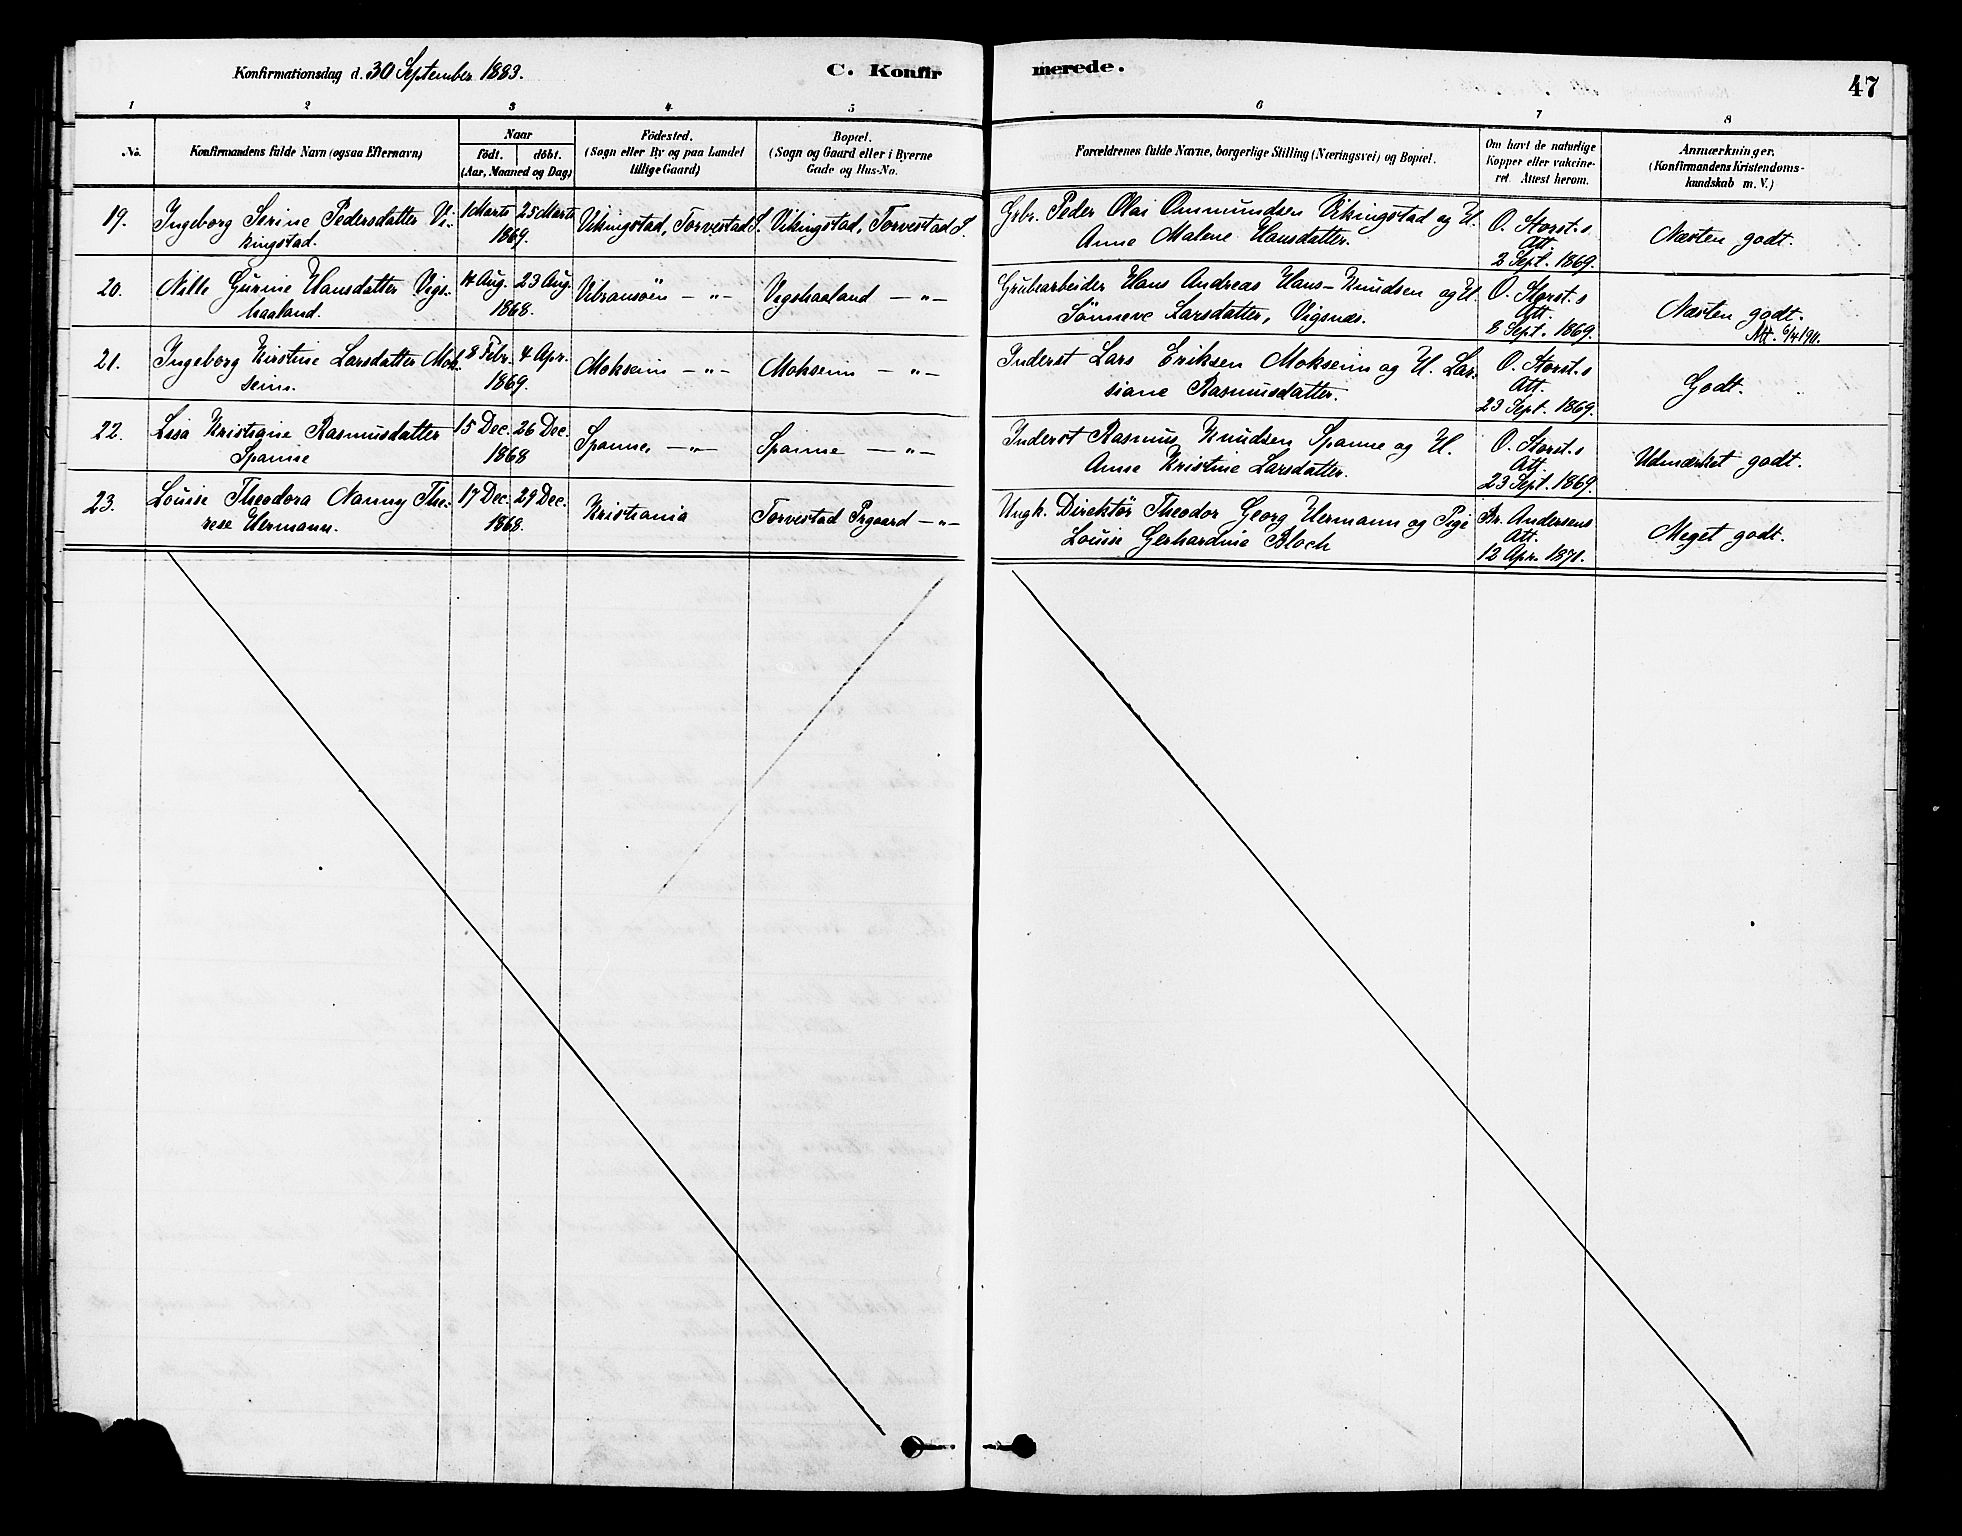 Konfirmationsdag d. 30 September 1883.
C. Konfirmerede.
47
1 2 3 4 5 6 7 8
No.
Konfirmandens fulde Navn (ogsaa Efternavn)
Naar
födt. döbt.
(Aar, Maaned og Dag)
Födested.
(Sogn eller By og paa Landet
tillige Gaard)
Bopæl.
(Sogn og Gaard eller i Byerne
Gade og Hus-No.
Forældrenes fulde Navne, borgerlige Stilling (Næringsvei) og Bopæl.
Om havt de naturlige
Kopper eller vakcine-
ret. Attest herom.
Anmærkninger.
(Konfirmandens Kristendoms-
kundskab m. V.)
19. Ingeborg Serine Pedersdatter Vi- 1 Marts 25 Marts Vikingstad, Torvestad S. Vikingstad, Torvestad S. Gbr. Peder Olai Ommundsen Vikingstad og H. O. Storst.s
kingstad. 1869. Anne Malene Hansdatter. Att. Næsten godt.
2 Sept. 1869.
20. Nille Gurine Hansdatter Vigs- 14 Aug. 23 Aug. Vibransöen — " — Vigshaaland — " — Grubearbeider Hans Andreas Hans-Knudsen og H. O. Storst.s
haaland. 1868. Sönneve Larsdatter, Vigsnæs. Att. Næsten godt.
8 Sept. 1869. Att. 6/4 1911.
21. Ingeborg Kirstine Larsdatter Mok- 8 Febr. 4 Apr. Mokseim — " — Mokseim — " — Inderst Lars Eriksen Mokseim og H. Lar- O. Storst.s
seim. 1869. siane Rasmusdatter. Att. Godt.
23 Sept. 1869.
22. Lisa Kristiane Rasmusdatter 15 Dec. 26 Dec. Spanne, — " — Spanne — " — Inderst Rasmus Knudsen Spanne og H. O. Storst.s
Spanne 1868 Anne Kristine Larsdatter. Att. Udmærket godt.
23 Sept. 1869.
23. Louise Theodora Nanny The- 17 Dec. 29 Dec. Kristiania Torvestad Prgaard — " — Ungk. Direktör Theodor Georg Hermann og Pige Br. Andersens
rese Hermann. 1868. Louise Gerhardine Bloch Att. Meget godt.
12 Apr. 1870.